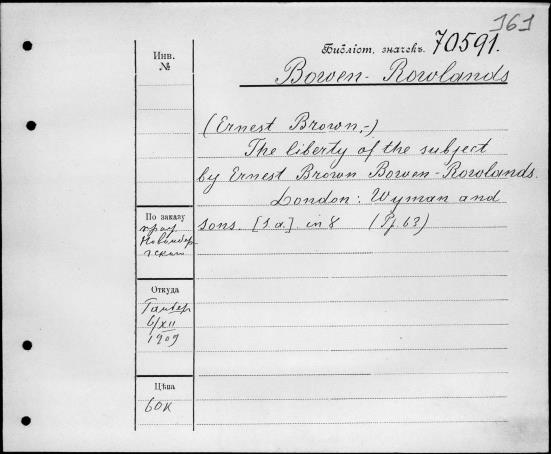 161
Библіот. значекъ. 70591.
Bowen-Rowlands
Инв.
№
(Ernest Brown,-)
The liberty of the subject
by Ernest Brown Bowen-Rowlands.
London: Wyman and
sons. [s.a.] in 8 (Pj. 63)
По заказу
проф
Откуда
6/XII
1909
Цѣна
60к